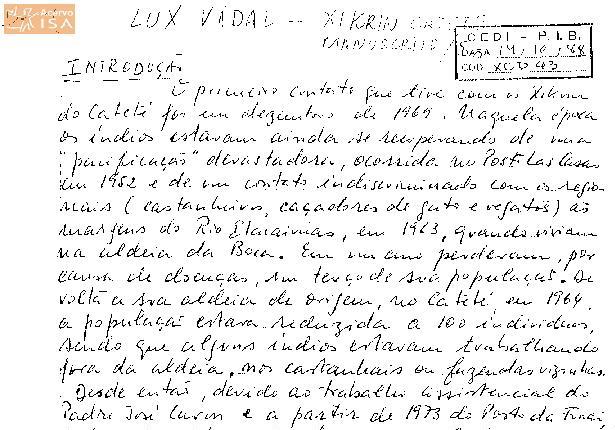 ACERVO
ISA
LUX VIDAL -- XIKRIN
MANUSCRITO
CEDI - P. I. B.
DATA 14/10/88
COD. XCD 43
INTRODUÇÃO
O primeiro contato que tive com os Xikrin
do Cateté foi em dezembro de 1969. Naquela época
os índios estavam ainda se recuperando de uma
"pacificação" devastadora, ocorrida no Post Las Casas
em 1952 e de um contato indiscriminado com os regio
nais (castanheiros, caçadores de gato e regatões) às
margens do Rio Itacaiunas, em 1963, quando viviam
na aldeia da Boca. Em um ano perderam, por
causa de doenças, um terço de sua população. De
volta a sua aldeia de origem, no Cateté em 1964
a população estava reduzida a 100 indivíduos,
sendo que alguns índios estavam trabalhando
fora da aldeia, nos castanhais ou fazendas vizinhas.
Desde então, devido ao trabalho assistencial do
Padre José Caron e a partir de 1973 do Posto da Funai